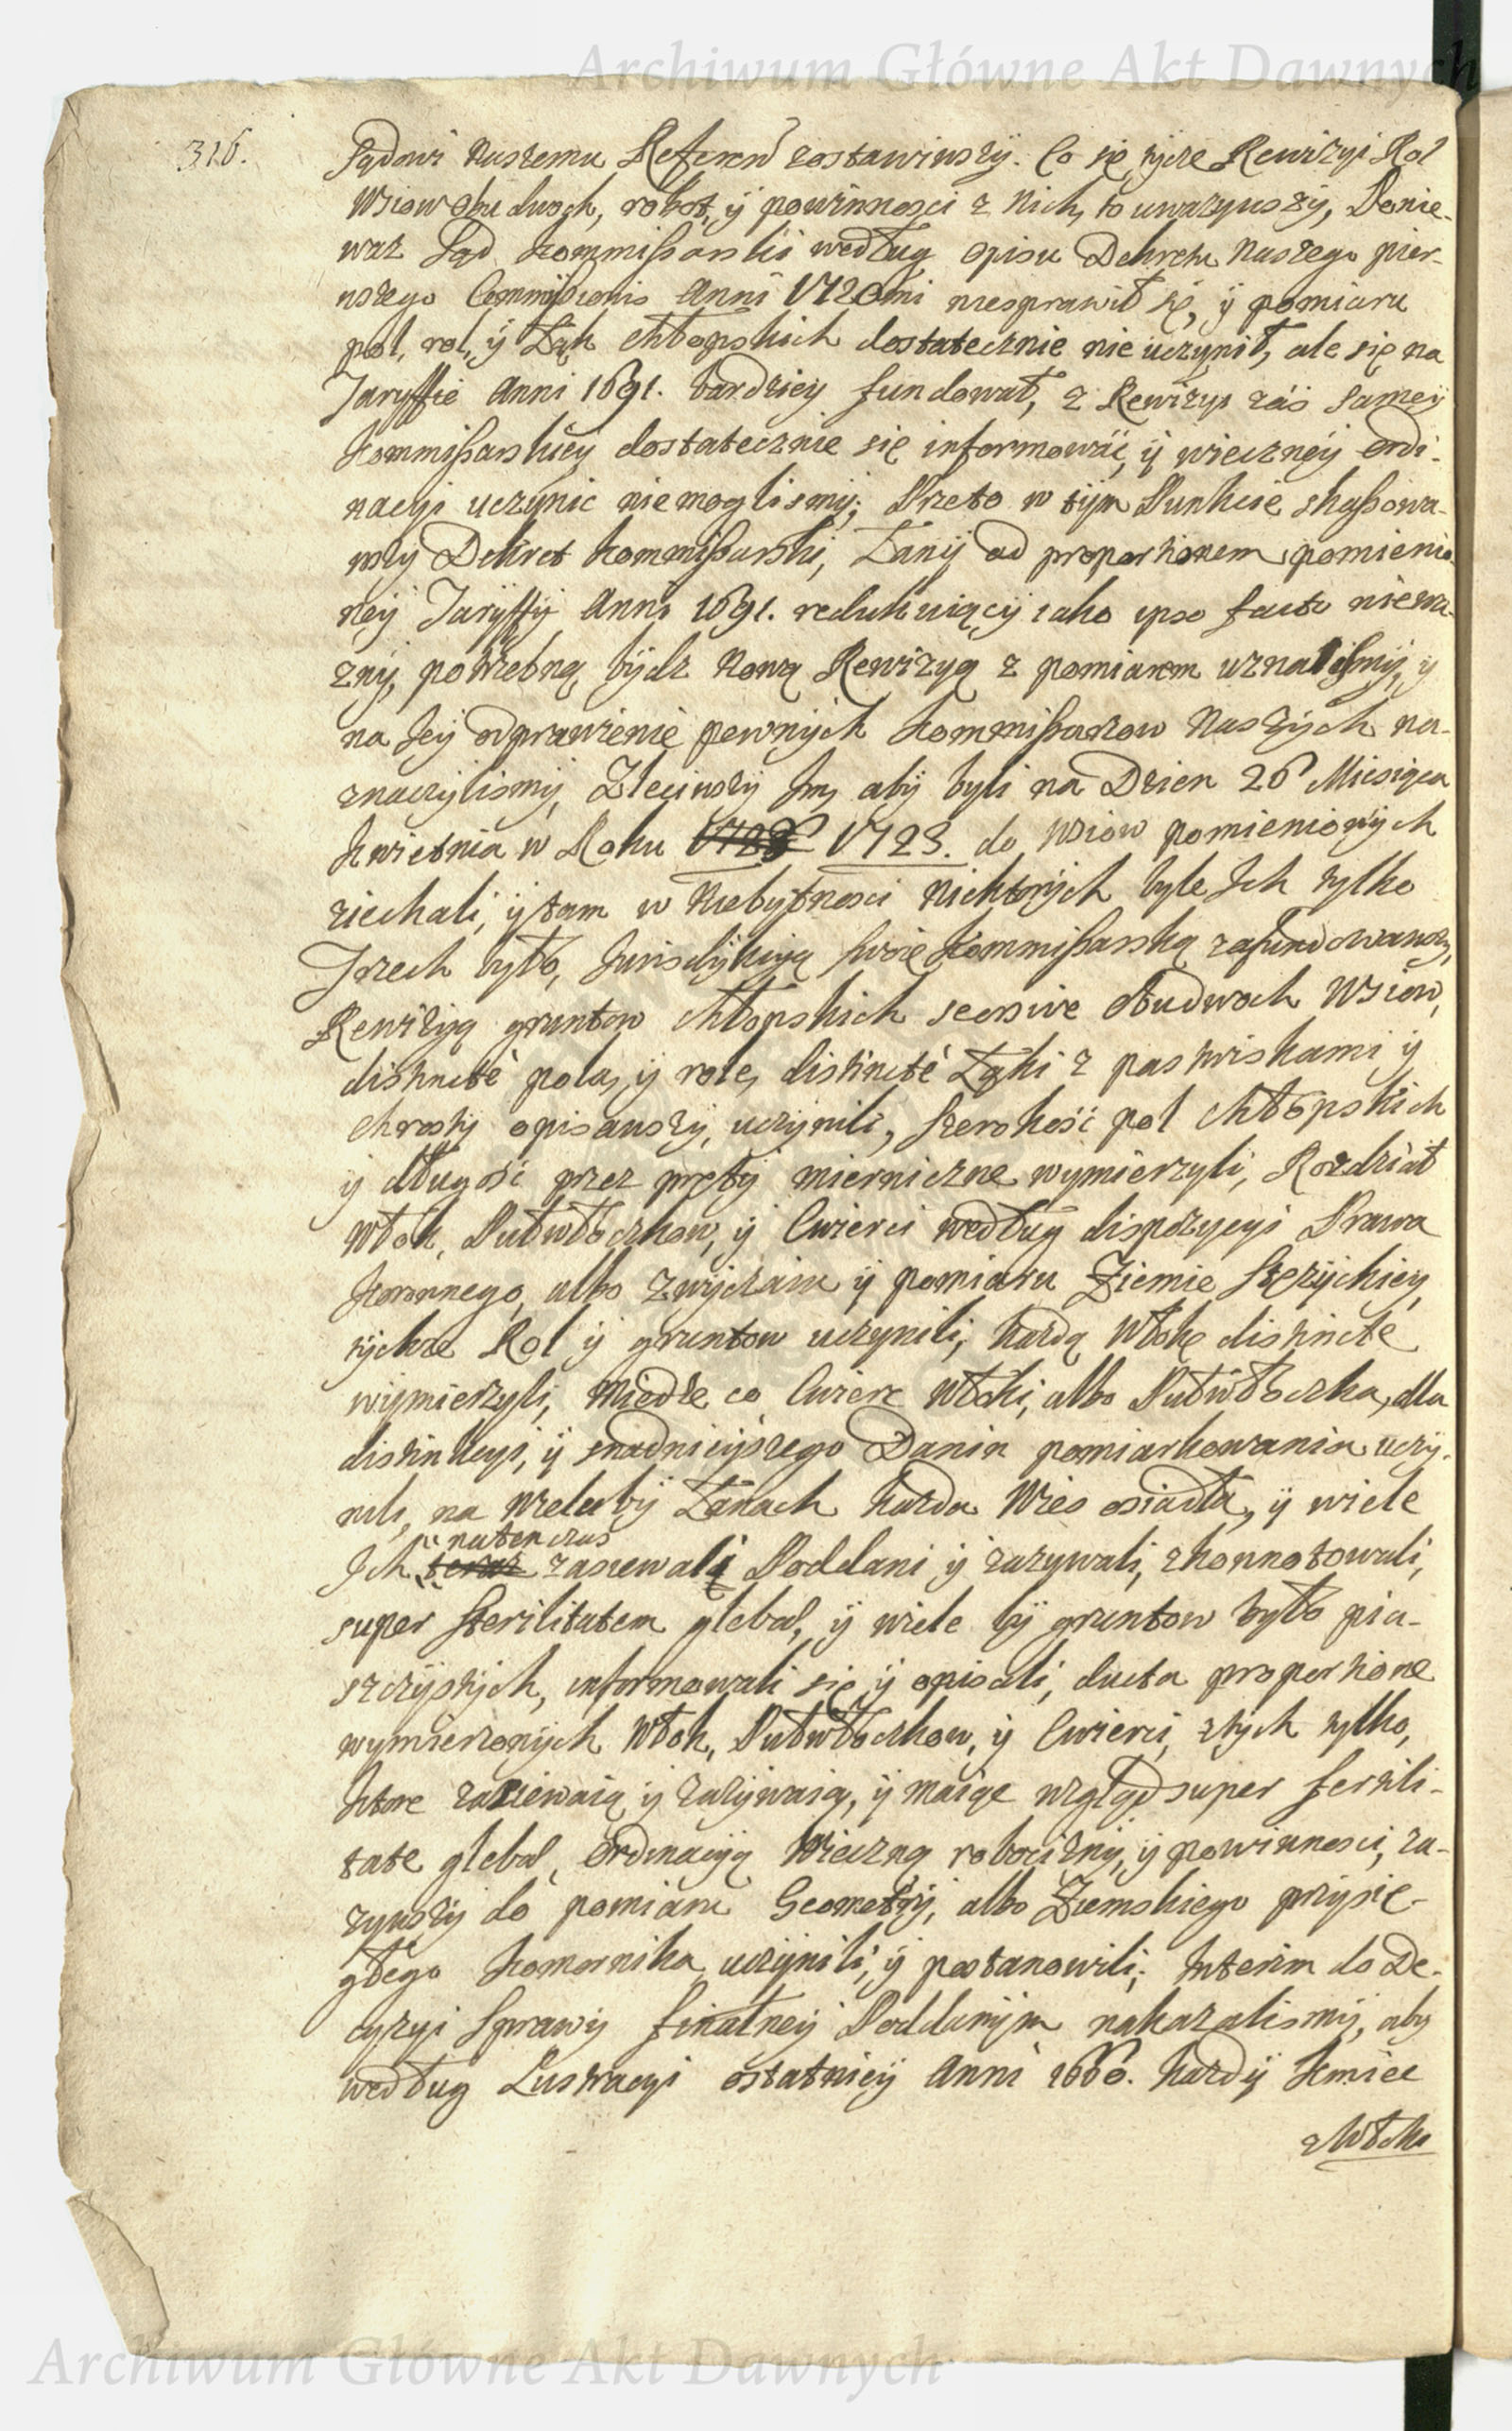 Archiwum Główne Akt Dawnych
316.
Sądowi Naszemu Referen̄ zostawiwszÿ. Co się tycze Rewizyi Rol
Wsiow obudwoch, robot, ÿ powinnosci z Nich, to uwazywszÿ, Ponie-
waz Sąd Kommissarski według opisu Dekretu Naszego pier-
wszego Commissionis Anni 1720mi niesprawił się, ÿ pomiaru
pol, rol, ÿ Łąk chłopskich dostatecznie nie uczynił, ale się na
Taryffie Anni 1691. bardziey fundował, z Rewizyi zás sameÿ
Kommissarskieÿ dostatecznie się informowáć, ÿ wieczneÿ Ordi-
nacyi uczynic niemoglismÿ; Przeto w tÿm Punkcie skassowa-
wszÿ Dekret Kommissarski, Łanÿ ad proportionem pomienio-
neÿ Tarÿffÿ Anni 1691. redukuiącÿ iako ipso facto niewa-
znÿ, potrzebną bÿdz Nową Rewizyą z pomiarem uznalismÿ, ÿ
na Jeÿ odprawienie pewnÿch Kommissarzow Naszÿch na-
znaczÿlismÿ, Zleciwszÿ Im, abÿ byli na Dzien 26 Miesiąca
Kwietnia w Roku 1728 1728. do Wsiow pomienionÿch
ziechali, ÿ tam w Niebÿtnosci Niektorÿch byle Ich tylko
Trzech było, Jurisdÿkcyą swoię Kommissarską zafundowawszÿ,
Rewizyą gruntow chłopskich seorsive obudwoch Wsiow,
distincte pola, ÿ role, distincte Łąki z pastwiskami ÿ
chrostÿ opisawszÿ, uczynili, Szerokość pol chłopskich
ÿ długość przez prętÿ miernicze wymierzyli, Rozdział
Włok, Pułwłoczkow, ÿ Cwierci według dispozycyi Prawa
Koronnego, albo Zwÿczaiu ÿ pomiaru Ziemie Stęzÿckiey,
tÿchze Rol ÿ gruntow uczynili, kazdą Włokę distincte
wÿmierzyli, Miedze co Cwierc Włoki, albo Pułwłoczka, dla
distinkcyi, ÿ snadnieÿszego Danin pomiarkowania uczÿ-
nili, na wielubÿ Łanach kazda Wies osiadła, ÿ wiele
natenczas
Ich teraz zasiewali Poddani ÿ zazywali, zkonnotowali,
super sterilitatem glebæ, ÿ wiele bÿ gruntow było pia-
szczÿstÿch, informowali się ÿ opisali, ducta proportione
wymierzonÿch Włok, Pułwłoczkow, ÿ Cwierci, ztych tylko,
Ktore zasiewaią ÿ zazÿwaią, ÿ maiąc wzgląd super fertili-
tate glebæ, Ordinacyą Wieczną robociznÿ, ÿ powinnosci, za-
zywszÿ do pomiaru Geometrÿ, albo Ziemskiego przysię-
głego Komornika, uczÿnili, ÿ postanowili; Interim do De-
cyzyi Sprawÿ finalneÿ Poddanÿm nakazalismÿ, aby
według Lustracyi ostatnieÿ Anni 1660. kazdÿ Kmiec
z Włoki
Archiwum Główne Akt Dawnych